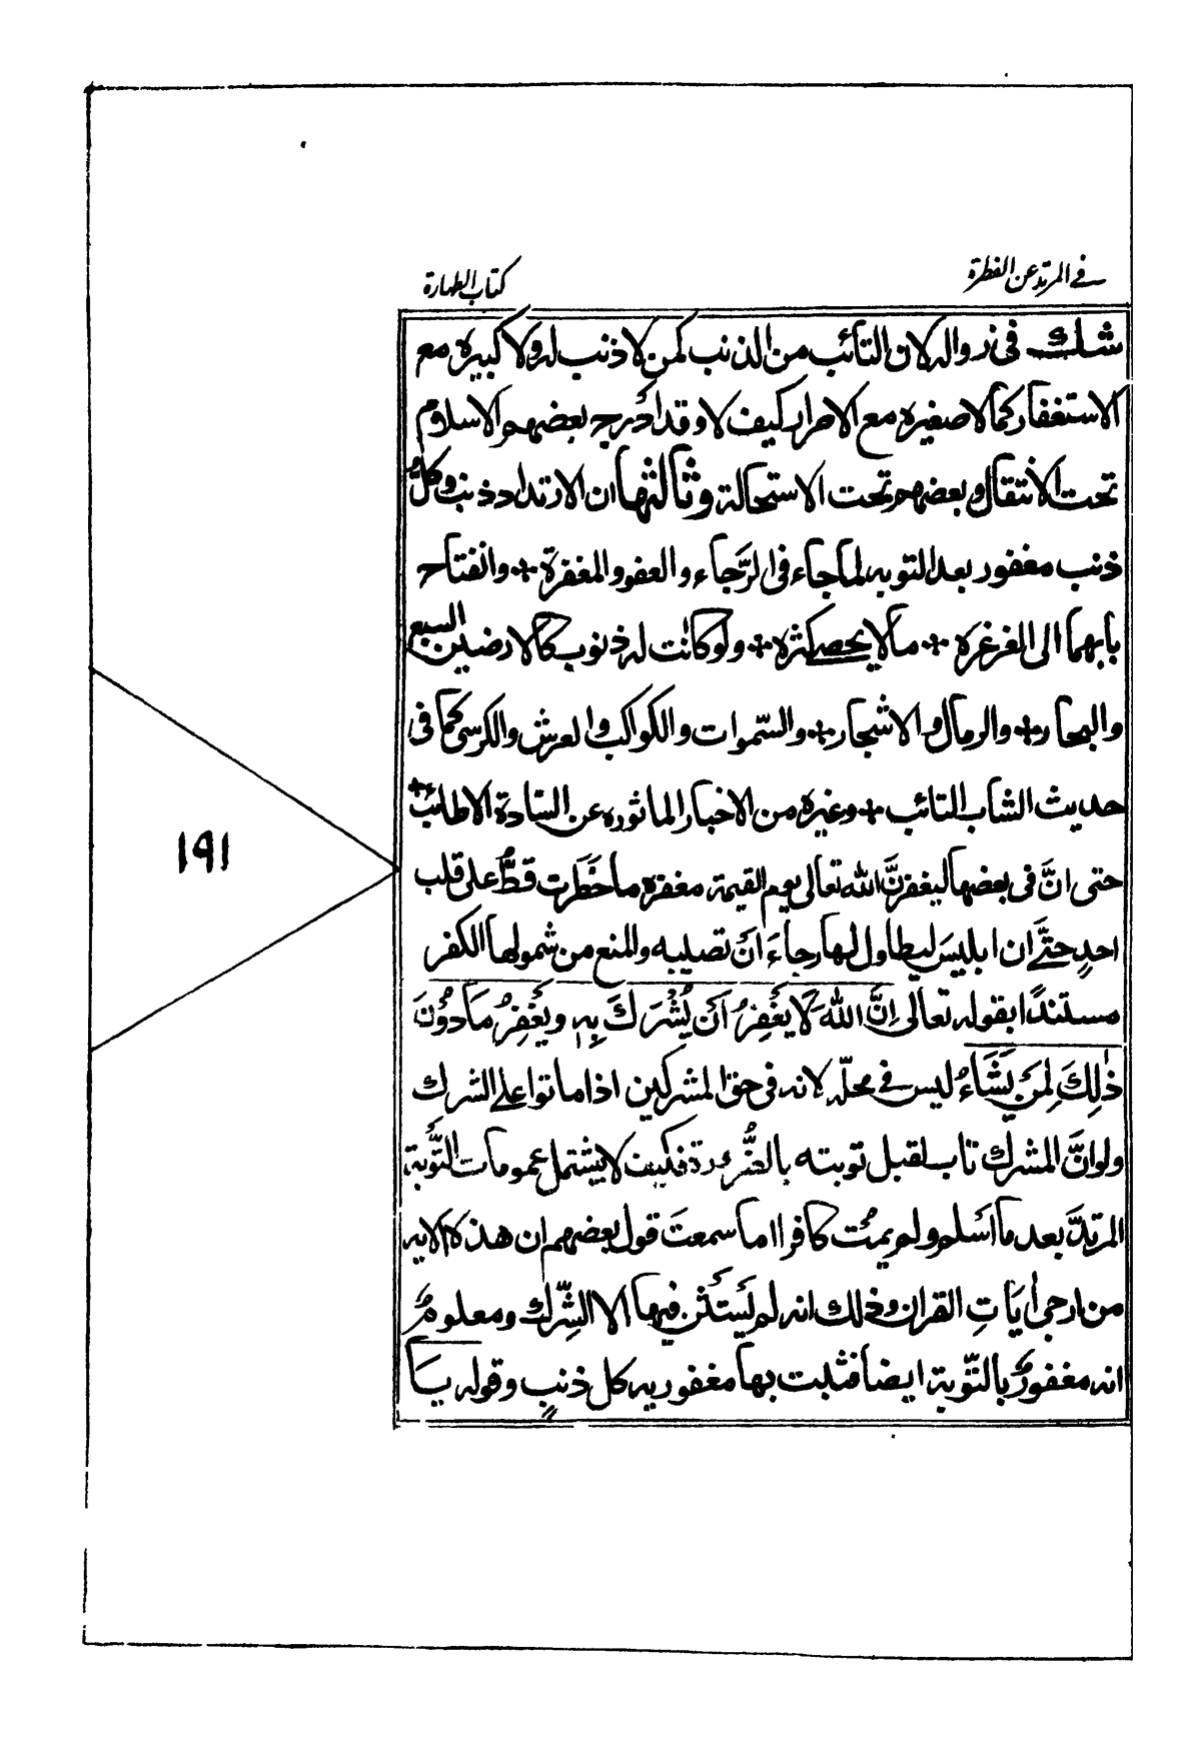 في المرتد عن الفطرة
كتاب الطهارة
شك في زواله لان التائب من الذنب كمن لا ذنب له ولا كبيرة مع
الاستغفار كما لا صغيرة مع الاصرار كيف لا وقد ادرج بعضهم الاسلام
تحت الانتقال وبعضهم تحت الاستحالة وثالثها ان الارتداد ذنب وكلُّ
ذنب مغفور بعد التوبه لما جاء في الرَّجاء والعفو والمغفرة + وانفتاح
بابهما الى الغرغرة + ما لا يحصى كثرة + ولو كانت له ذنوب كالارضين السبع
والبحار + والرمال والاشجار + والسّموات والكواكب والعرش والكرسى كما فى
حديث الشاب التائب + وغيره من الاخبار الماثوره عن السّادة الاطائب +
حتى انَّ فى بعضها ليغفرنَّ الله تعالى يوم القيمة مغفرة ما خَطَرت قطُّ على قلب
احدٍ حتَّى ان ابليسَ ليطاول لها رجاءَ انَ تصليبه والمنع من شمولها الكفر
مستندًا بقوله تعالى اِنَّ اللهَ لَا يَغْفِرُ اَنْ يُشْرَكَ بِهٖ ويَغْفِرُ مَا دُوْنَ
ذٰلِكَ لِمَنْ يَشَاءُ ليس في محلّه لانه فى حق المشركين اذا ماتوا على الشرك
ولو انَّ المشرك تاب لقبل توبته بالضُّرورة فكيف لا يشتمل عمومات التَّوبة
المرتدَّ بعد ما اَسْلم ولم يمُت كافرا اما سمعتَ قول بعضهم ان هذه الايه
من ارجى اٰيَاتِ القران وذلك انه لم يَستَثن فيها الا الشِّرك ومعلومٌ
انه مغفورٌ بالتّوبة ايضا فثبت بها مغفوريه كل ذنبٍ وقوله يَا
١٩١